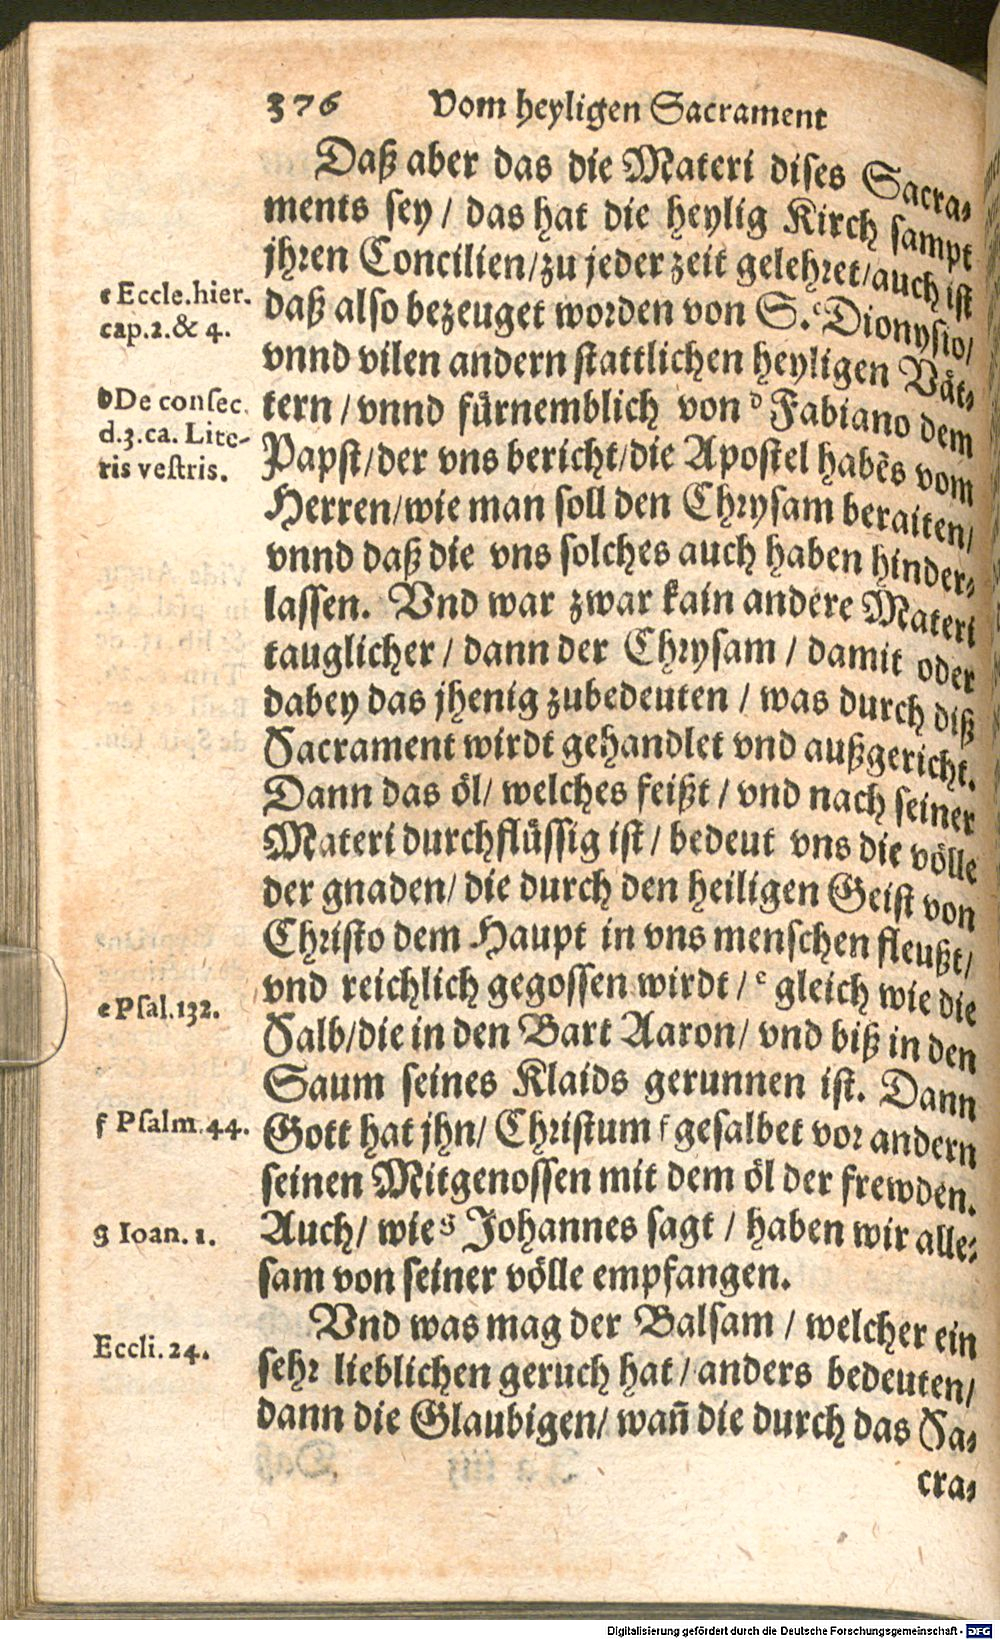 376 Vom heyligen Sacrament
Daß aber das die Materi dises Sacra-
ments sey / das hat die heylig Kirch sampt
jhren Concilien/zu jeder zeit gelehret/auch ist
c Eccle.hier.
cap.2.& 4.
daß also bezeuget worden von S. c Dionysio/
vnnd vilen andern stattlichen heyligen Vät-
D De consec.
d.3.ca. Lite-
ris vestris.
tern / vnnd fürnemblich von D Fabiano dem
Papst/der vns bericht/die Apostel habẽs vom
Herren/wie man soll den Chrysam beraiten/
vnnd daß die vns solches auch haben hinder-
lassen. Vnd war zwar kain andere Materi
tauglicher / dann der Chrysam / damit oder
dabey das jhenig zubedeuten / was durch diß
Sacrament wirdt gehandlet vnd außgericht.
Dann das öl/ welches feißt / vnd nach seiner
Materi durchflüssig ist / bedeut vns die völle
der gnaden/ die durch den heiligen Geist von
Christo dem Haupt in vns menschen fleußt/
e Psal.132.
vnd reichlich gegossen wirdt / e gleich wie die
Salb/die in den Bart Aaron/ vnd biß in den
Saum seines Klaids gerunnen ist. Dann
f Psalm.44.
Gott hat jhn/ Christum f gesalbet vor andern
seinen Mitgenossen mit dem öl der frewden.
g Ioan. 1.
Auch/ wie g Johannes sagt / haben wir alle-
sam von seiner völle empfangen.
Eccli.24.
Vnd was mag der Balsam / welcher ein
sehr lieblichen geruch hat / anders bedeuten/
dann die Glaubigen/ wañ die durch das Sa-
cra-
Digitalisierung gefördert durch die Deutsche Forschungsgemeinschaft - DFG